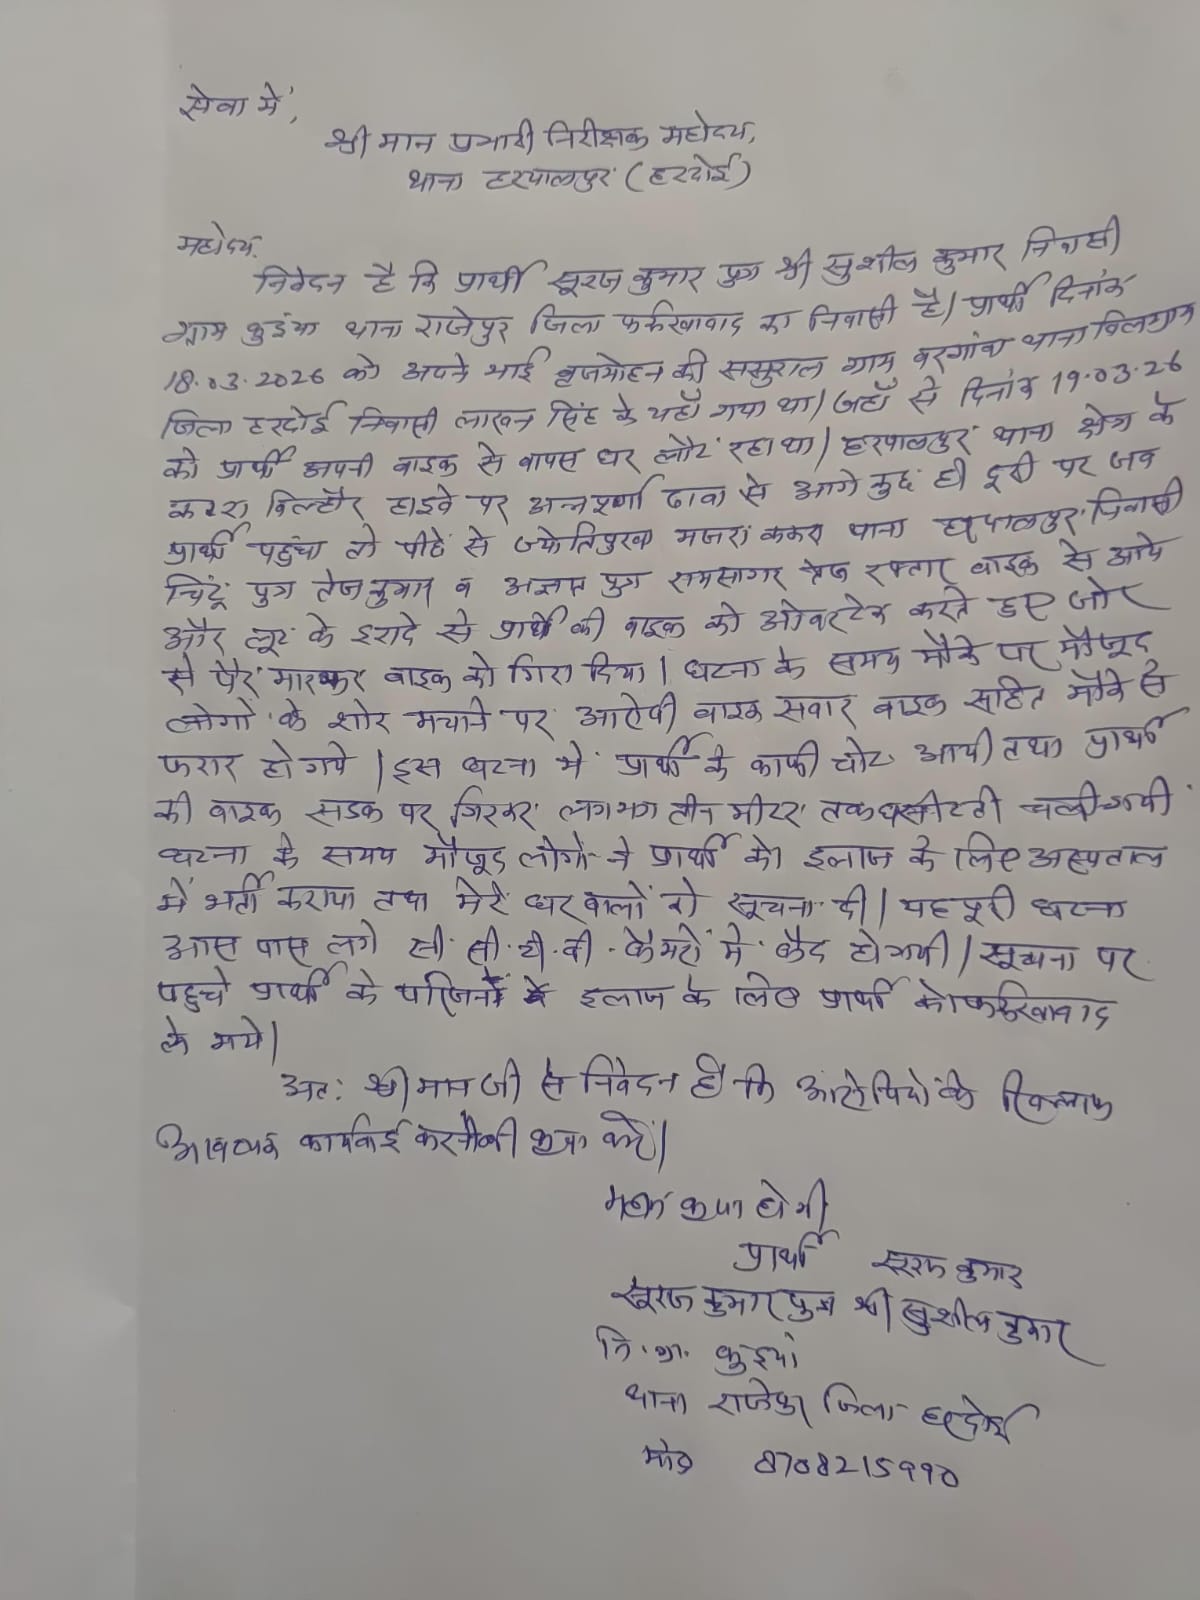 सेवा में,
श्रीमान प्रभारी निरीक्षक महोदय,
थाना हरपालपुर (हरदोई)
महोदय.
निवेदन है कि प्रार्थी सूरज कुमार पुत्र श्री सुशील कुमार निवासी
ग्राम कुइंया थाना राजेपुर जिला फर्रुखावाद का निवासी है। प्रार्थी दिनांक
18.03.2026 को अपने भाई बृजमोहन की ससुराल ग्राम वरगांवा थाना विलग्राम
जिला हरदोई निवासी लाखन सिंह के यहाँ गया था। जहाँ से दिनांक 19.03.26
को प्रार्थी अपनी वाइक से वापस घर लौट रहा था। हरपालपुर थाना क्षेत्र के
कटरा विल्हौर हाइवे पर अन्नपूर्णा ढावा से आगे कुछ ही दूरी पर जव
प्रार्थी पहुंचा तो पीछे से ज्योतिपुरवा मजरा ककरा थाना हरपालपुर निवासी
चिंटू पुत्र तेजकुमार व अज्ञात पुत्र रामसागर तेज रफ्तार वाइक से आये
और लूट के इरादे से प्रार्थी की वाइक को ओवरटेक करते हुए जोर
से पैर मारकर वाइक को गिरा दिया। घटना के समय मौके पर मौजूद
लोगों के शोर मचाने पर आरोपी वाइक सवार वाइक सहित मौके से
फरार हो गये। इस घटना में प्रार्थी के काफी चोट आयी तथा प्रार्थी
की वाइक सडक पर गिरकर लगभग तीन मीटर तक घसीटती चली गयी
घटना के समय मौजूद लोगों ने प्रार्थी को इलाज के लिए अस्पताल
में भर्ती कराया तथा मेरे घर वालों को सूचना दी। यह पूरी घटना
आस पास लगे सी.सी.टी.वी. कैमरों में कैद हो गयी। सूचना पर
पहुचे प्रार्थी के परिजनों इलाज के लिए प्रार्थी को फर्रुखावाद
ले गये।
अत: श्रीमान जी से निवेदन है कि आरोपियों के खिलाफ
आवश्यक कार्यवाई करने की कृपा करें।
महान कृपा होगी
प्रार्थी सूरज कुमार
सूरज कुमार पुत्र श्री सुशील कुमार
नि.ग्रा. कुइयां
थाना राजेपुर जिला हरदोई
मो० 8708215990